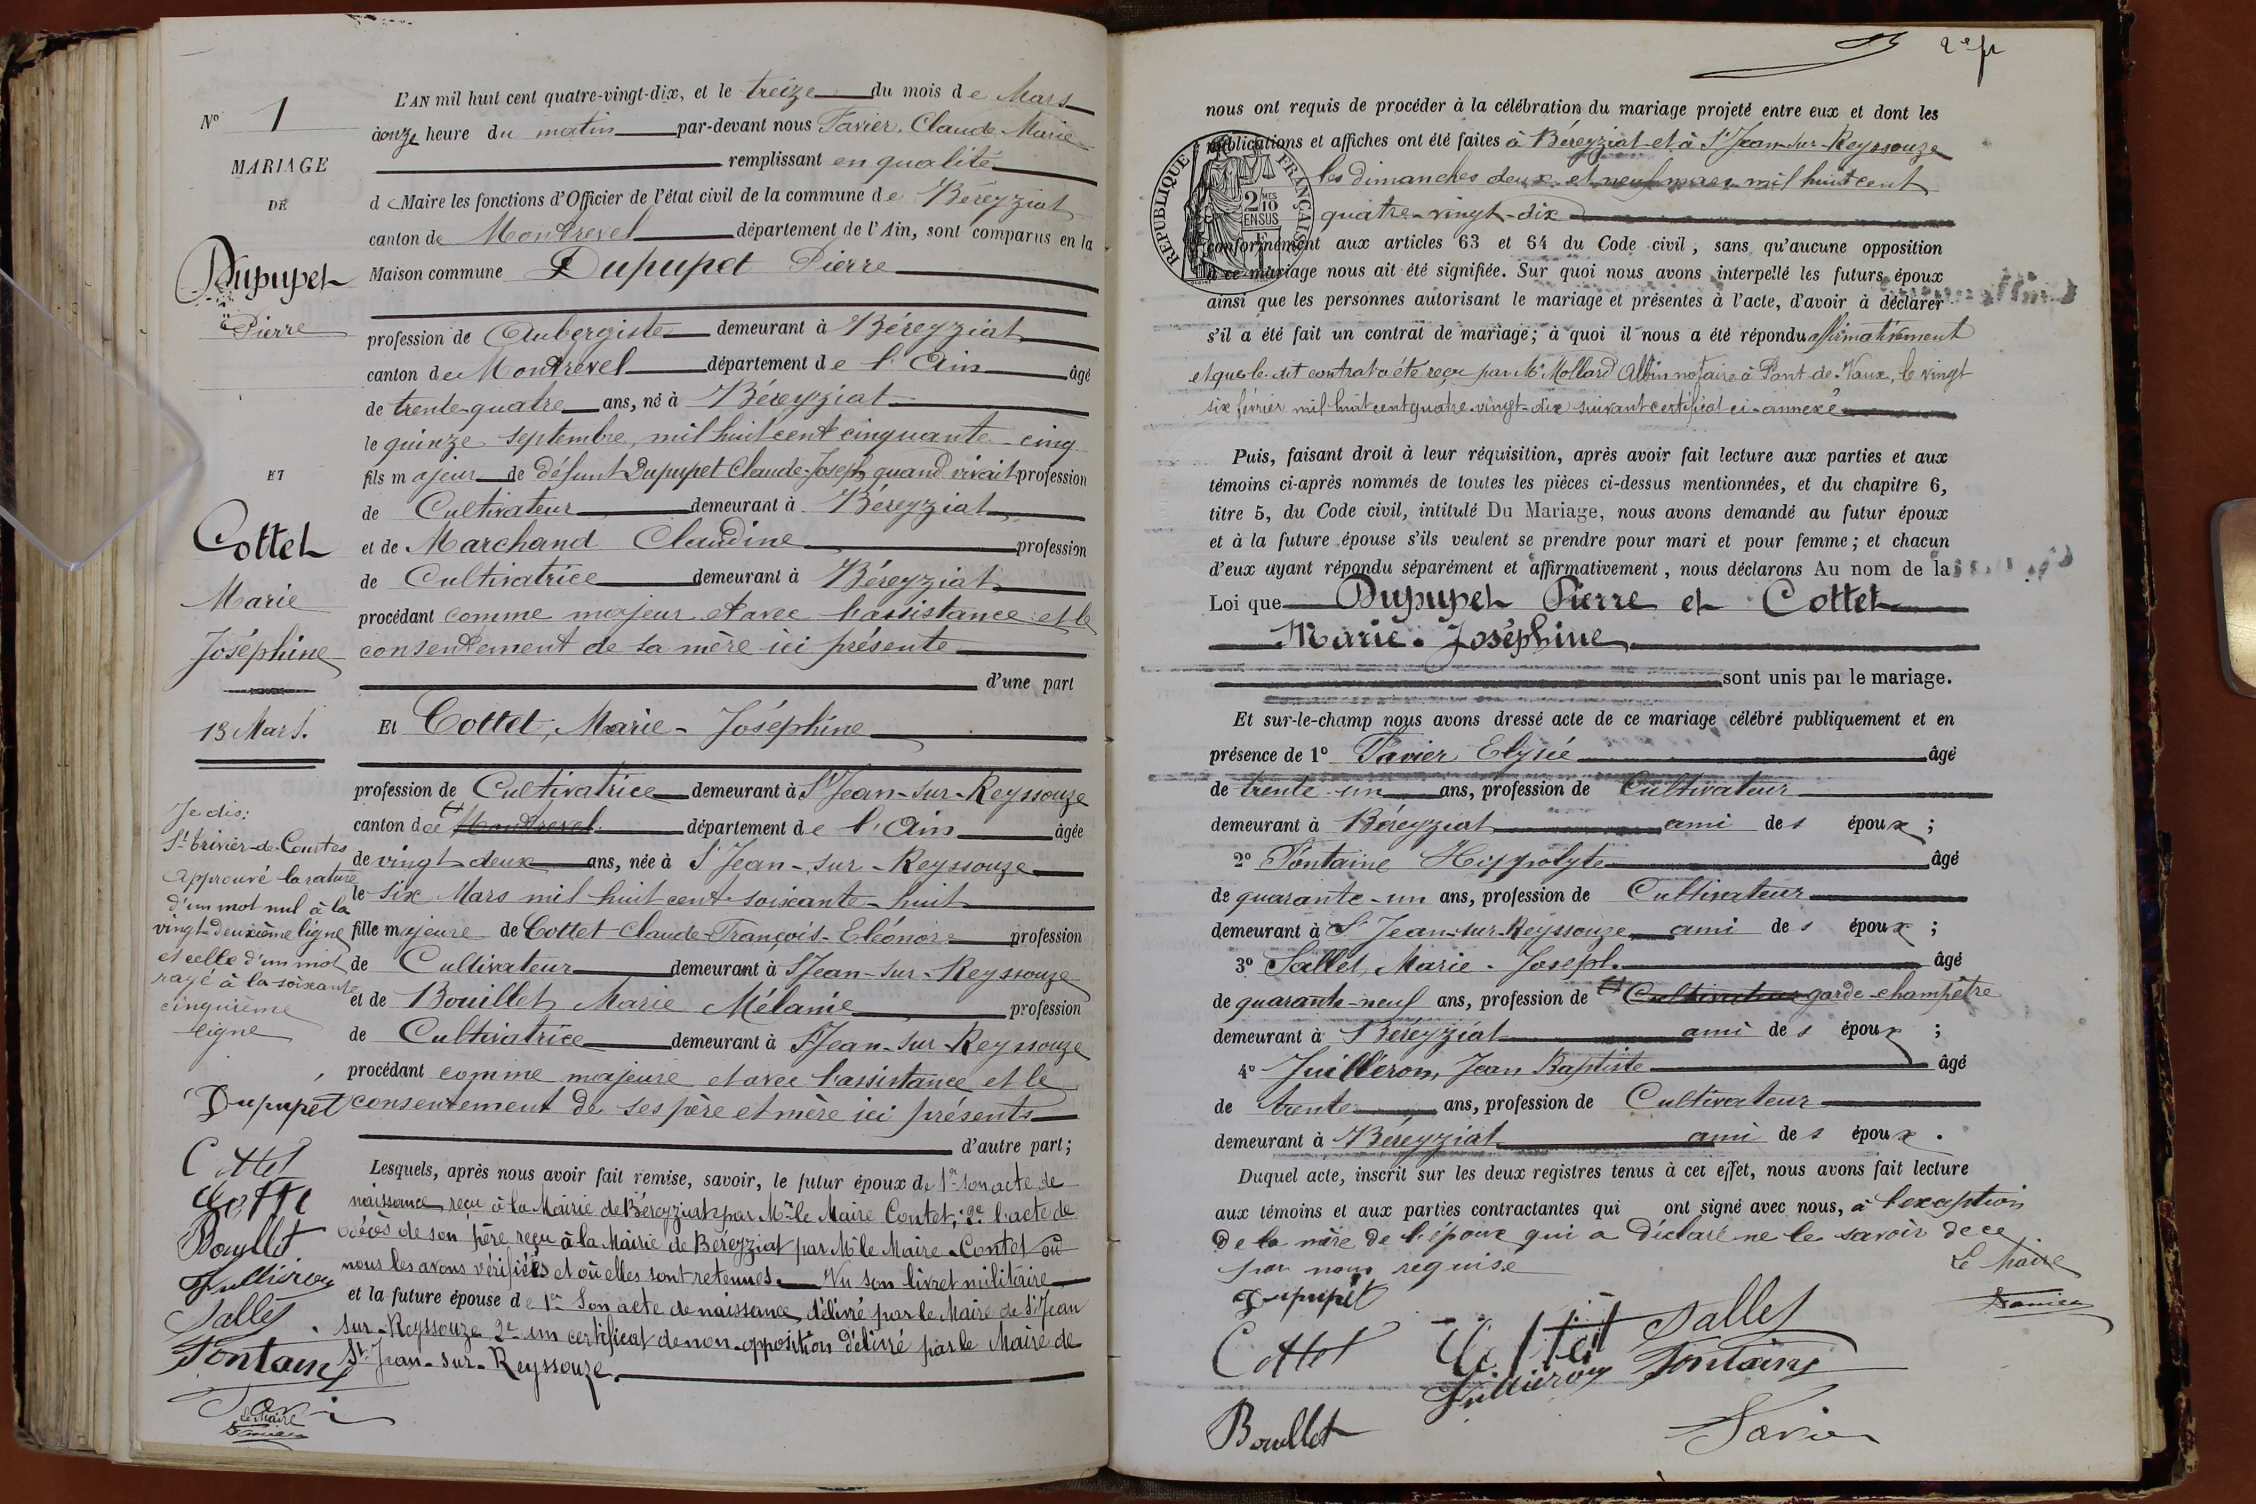 N° 1
MARIAGE
DE
Dupupet
Pierre
ET
Cottet
Marie
Joséphine
13 Mars.
Je dis:
St trivier-de-Courtes
approuvé la rature
d'un mot nul à la
vingt-deuxième ligne
et celle d'un mot
rayé à la soixante
cinquième
ligne
Dupupet
Cottet
Cotte
Bouillet
Juilliéron
Sallet
Fontaine
Le Maire
L'AN mil huit cent quatre-vingt-dix, et le treize du mois de Mars
à onze heure du matin par-devant nous Favier, Claude Marie
remplissant en qualité
de Maire les fonctions d'Officier de l'état civil de la commune de Béreyziat
canton de Montrevel département de l'Ain, sont comparus en la
Maison commune Dupupet Pierre
profession de Aubergiste demeurant à Béreyziat
canton de Montrevel département de l'Ain âgé
de trente-quatre ans, né à Béreyziat
le quinze septembre, mil huit cent cinquante-cinq
fils majeur de défunt Dupupet Claude-Joseph quand vivait profession
de Cultivateur demeurant à Béreyziat
et de Marchand Claudine profession
de Cultivatrice demeurant à Béreyziat
procédant comme majeur et avec l'assistance et le
consentement de sa mère ici présente
d'une part
Et Cottet, Marie-Joséphine
profession de Cultivatrice demeurant à St Jean-sur-Reyssouze
canton de Montrevel département de l'Ain âgée
de vingt deux ans, née à St Jean-sur-Reyssouze
le six Mars mil huit cent soixante-huit
fille majeure de Cottet Claude-François-Eléonore profession
de Cultivateur demeurant à St Jean-sur-Reyssouze
et de Bouillet Marie Mélanie profession
de Cultivatrice demeurant à St Jean-sur-Reyssouze
procédant comme majeure et avec l'assistance et le
consentement de ses père et mère ici présents
d'autre part;
Lesquels, après nous avoir fait remise, savoir, le futur époux de 1° son acte de
naissance reçu à la Mairie de Béreyziat par Mr le Maire Contet; 2° l'acte de
décès de son père reçu à la Mairie de Béreyziat par Mr le Maire Contet où
nous les avons vérifiées et où elles sont retenues. Vu son livret militaire
et la future épouse de 1° Son acte de naissance, délivré par le Maire de St Jean
sur-Reyssouze 2° un certificat de non-opposition délivré par le Maire de
St Jean-sur-Reyssouze.
nous ont requis de procéder à la célébration du mariage projeté entre eux et dont les
publications et affiches ont été faites à Béreyziat et à St Jean-sur-Reyssouze
les dimanches deux et neuf mars mil huit cent
quatre-vingt-dix
RÉPUBLIQUE FRANÇAISE
2/10 MES
EN SUS
conformément aux articles 63 et 64 du Code civil, sans qu'aucune opposition
à ce mariage nous ait été signifiée. Sur quoi nous avons interpellé les futurs époux
ainsi que les personnes autorisant le mariage et présentes à l'acte, d'avoir à déclarer
s'il a été fait un contrat de mariage; à quoi il nous a été répondu affirmativement
et que le dit contrat a été reçu par Me Mollard Albin notaire à Pont-de-Vaux, le vingt
six février mil huit cent quatre-vingt-dix suivant certificat ci-annexé
Puis, faisant droit à leur réquisition, après avoir fait lecture aux parties et aux
témoins ci-après nommés de toutes les pièces ci-dessus mentionnées, et du chapitre 6,
titre 5, du Code civil, intitulé Du Mariage, nous avons demandé au futur époux
et à la future épouse s'ils veulent se prendre pour mari et pour femme; et chacun
d'eux ayant répondu séparément et affirmativement, nous déclarons Au nom de la
Loi que Dupupet Pierre et Cottet
Marie-Joséphine
sont unis par le mariage.
Et sur-le-champ nous avons dressé acte de ce mariage célébré publiquement et en
présence de 1° Favier Elysée âgé
de trente-un ans, profession de Cultivateur
demeurant à Béreyziat ami des époux;
2° Fontaine Hippolyte âgé
de quarante-un ans, profession de Cultivateur
demeurant à St Jean-sur-Reyssouze ami des époux;
3° Sallet, Marie-Joseph. âgé
de quarante-neuf ans, profession de Cultivateur garde-champêtre
demeurant à Béreyziat ami des époux;
4° Juilléron, Jean Baptiste âgé
de trente ans, profession de Cultivateur
demeurant à Béreyziat ami des époux.
Duquel acte, inscrit sur les deux registres tenus à cet effet, nous avons fait lecture
aux témoins et aux parties contractantes qui ont signé avec nous, à l'exception
de la mère de l'époux qui a déclaré ne le savoir de ce
par nous requise
Le Maire
Dupupet
Cottet
Cottet
Sallet
Juilliéron
Fontaine
Bouillet
Favier